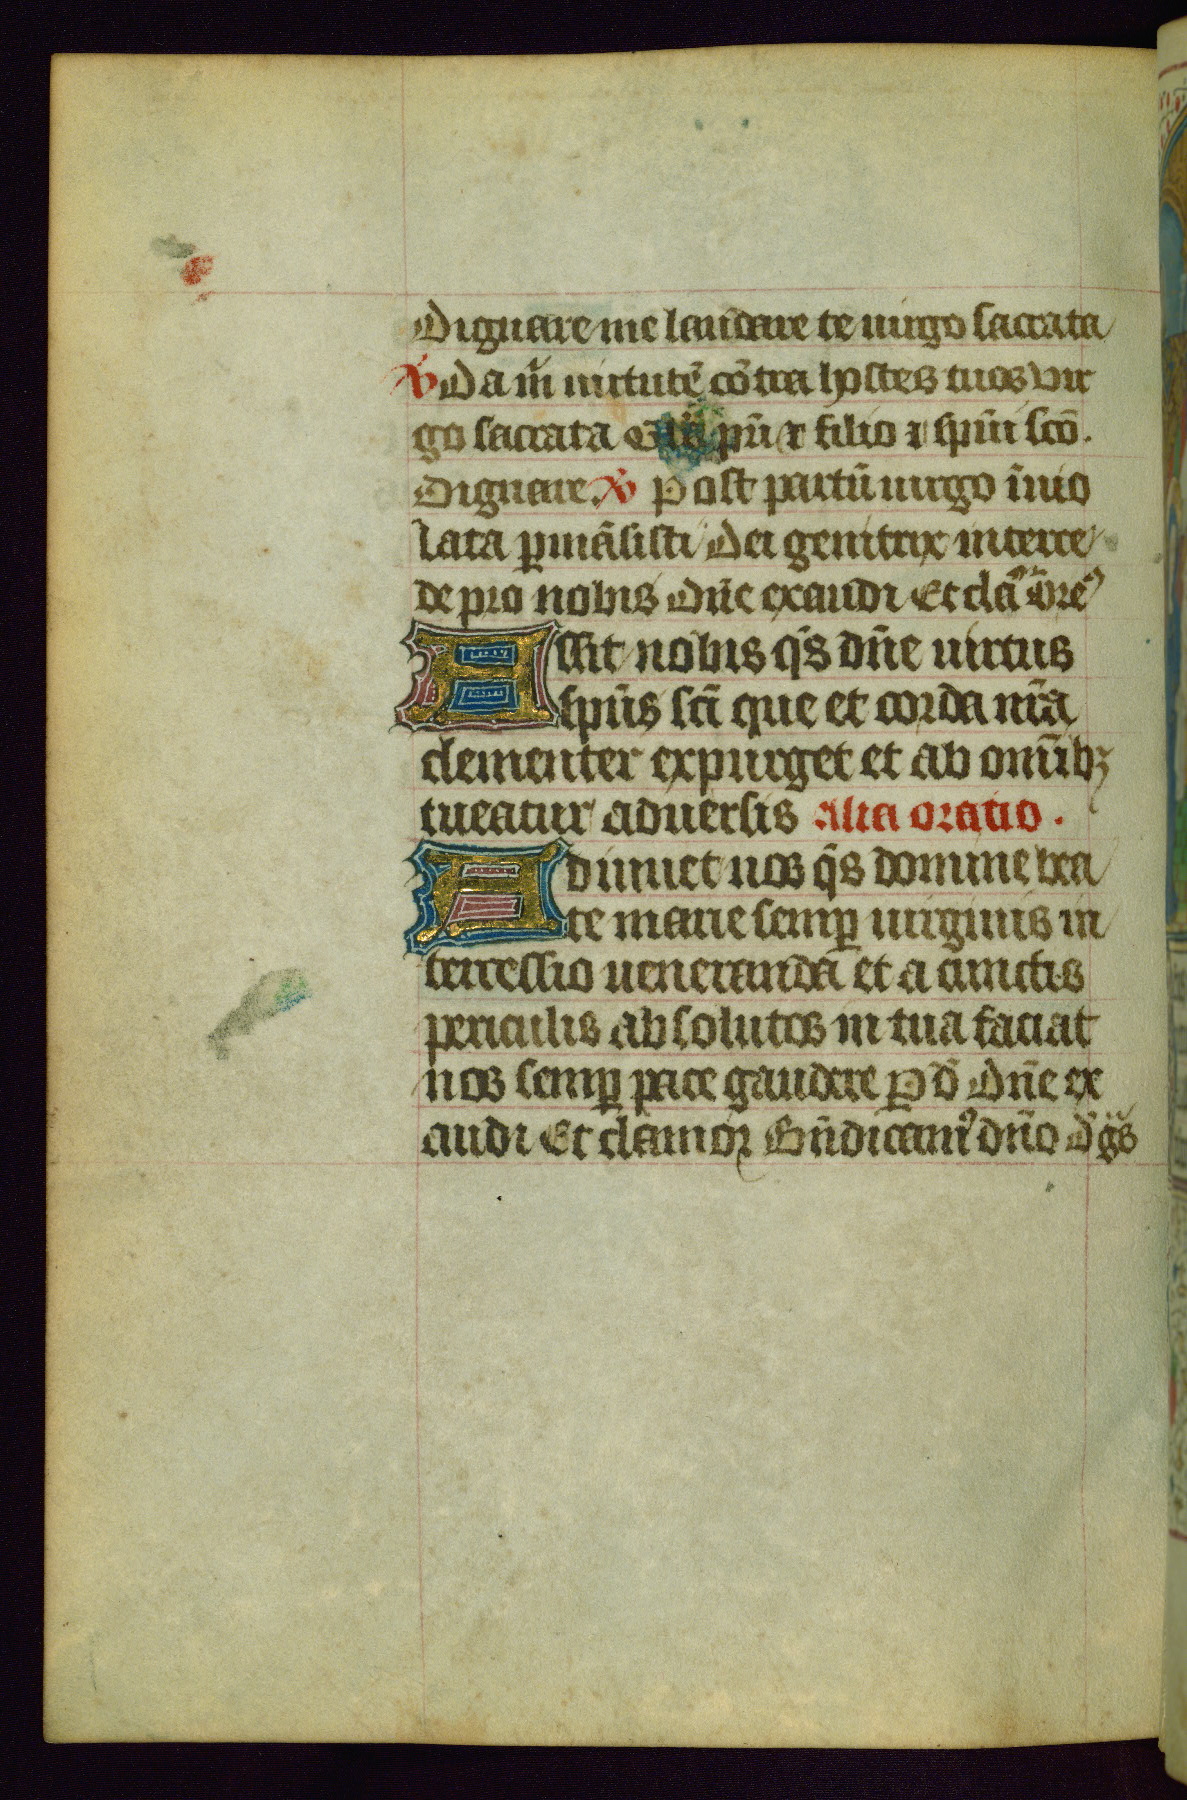 Dignare me laudare te uirgo sacrata
℣ Da m̄ uirtutē cōtra hostes tuos vir
go sacrata Gl̄a pr̄i ⁊ filio ⁊ sp̄ui scō.
Dignare. ℣ Post partū uirgo īuio
lata ꝑmāsisti Dei genitrix interce
de pro nobis Dn̄e exaudi Et cla᷒ ōre᷒
Assit nobis q̄s dn̄e uirtus
sp̄us sc̄i que et corda nr̄a
clementer expurget et ab om̄ibꝫ
tueatur aduersis Alia oratio.
Adiuuet nos q̄s domine bea
te marie semꝑ uirginis in
tercessio ueneranda et a cunctis
periculis absolutos in tua faciat
nos semꝑ pace gaudere P d̄ Dn̄e ex
audi Et clamor Bn̄dicam᷒ dn̄o D̄ gs